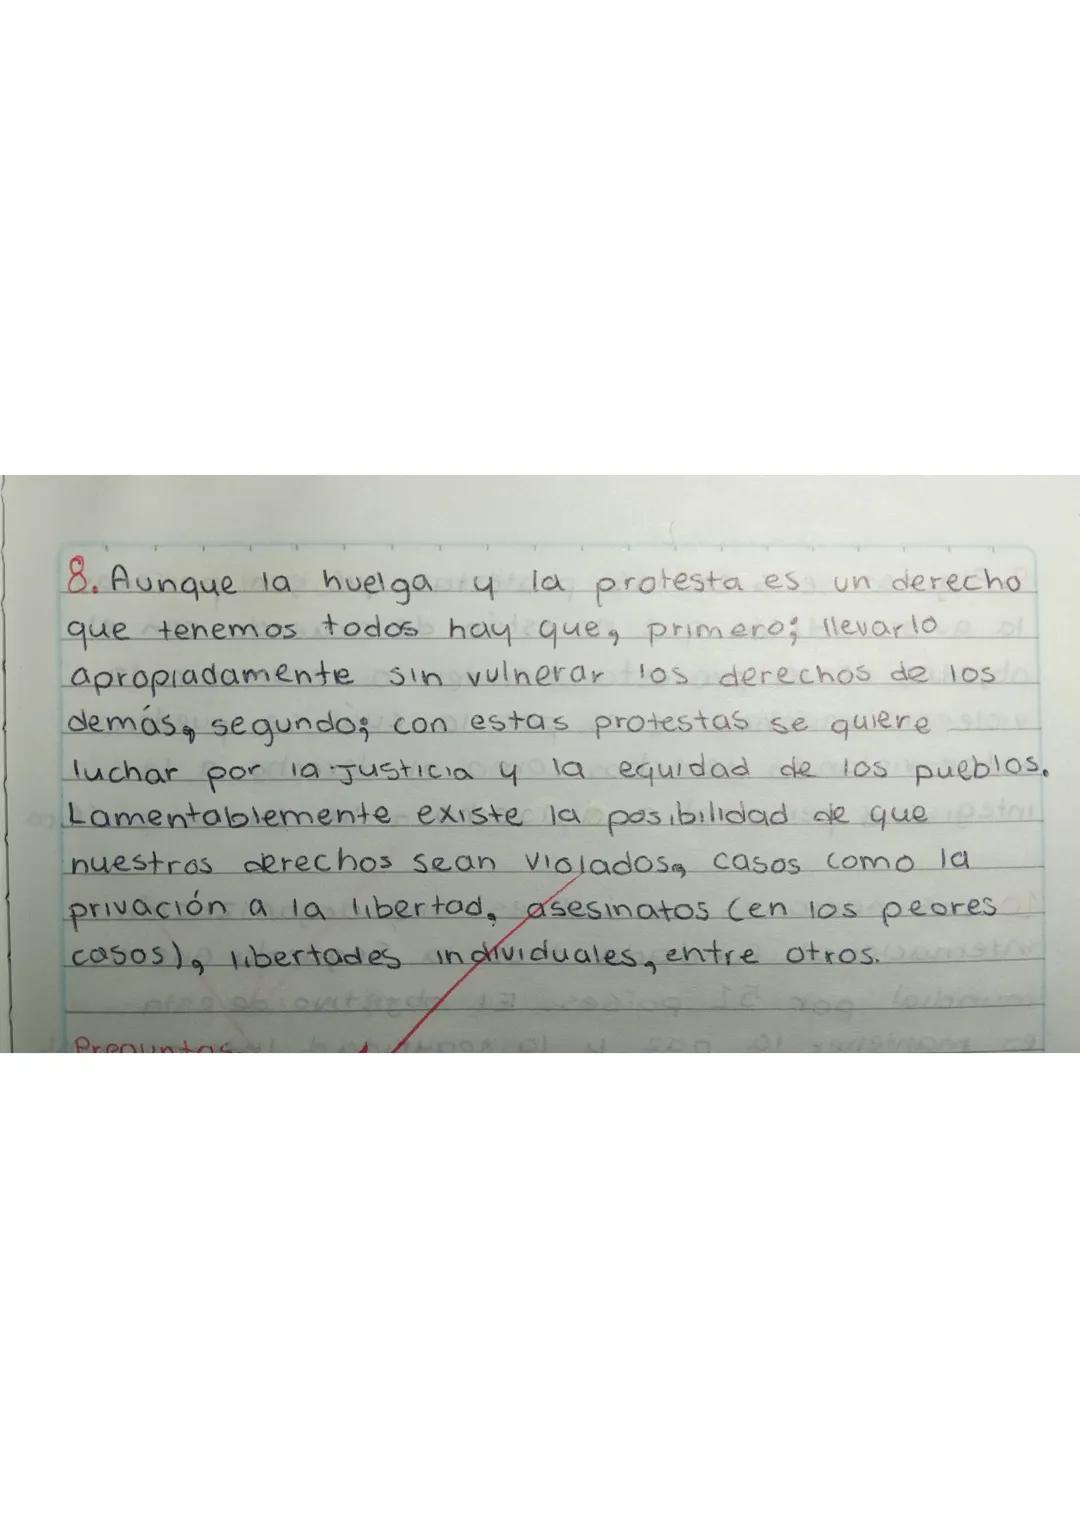 8. Aunque la huelga y la protesta es un derecho
que tenemos todos hay que, primero; llevarlo
apropiadamente sin vulnerar los derechos de los
demás, segundo; con estas protestas se quiere
luchar por la justicia y la equidad de los pueblos.
Lamentablemente existe la posibilidad de que
nuestros derechos sean violados, casos como la
privación a la libertad, asesinatos (en los peores
casos), libertades individuales, entre otros.
Preguntas